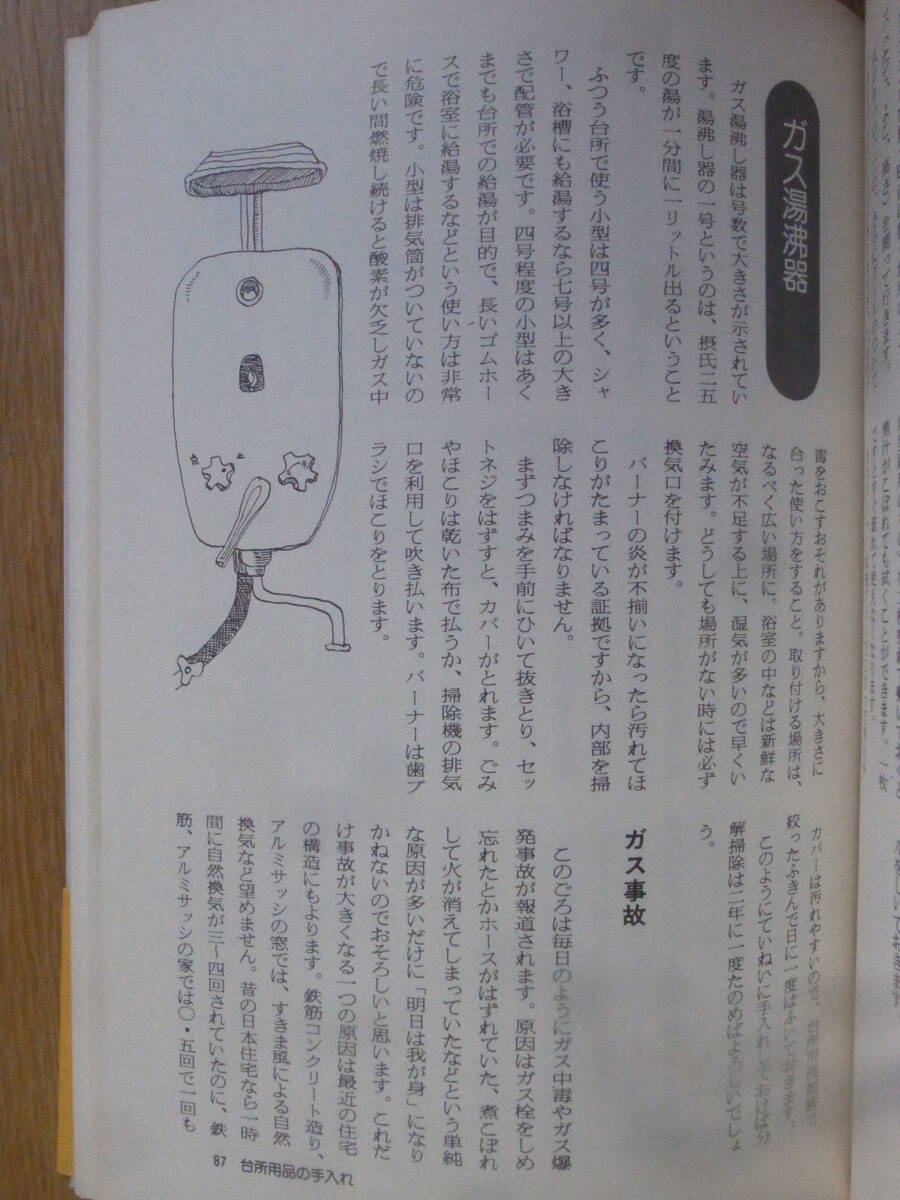 ガス湯沸器
ガス湯沸し器は号数で大きさが示されてい
ます。湯沸し器の一号というのは、摂氏二五
度の湯が一分間に一リットル出るということ
です。
ふつう台所で使う小型は四号が多く、シャ
ワー、浴槽にも給湯するなら七号以上の大き
さで配管が必要です。四号程度の小型はあく
までも台所での給湯が目的で、長いゴムホー
スで浴室に給湯するなどという使い方は非常
に危険です。小型は排気筒がついていないの
で長い間燃焼し続けると酸素が欠乏しガス中
毒をおこすおそれがありますから、大きさに
合った使い方をすること。取り付ける場所は、
なるべく広い場所に。浴室の中などは新鮮な
空気が不足する上に、湿気が多いので早くい
たみます。どうしても場所がない時には必ず
換気口を付けます。
バーナーの炎が不揃いになったら汚れてほ
こりがたまっている証拠ですから、内部を掃
除しなければなりません。
まずつまみを手前にひいて抜きとり、セッ
トネジをはずすと、カバーがとれます。ごみ
やほこりは乾いた布で払うか、掃除機の排気
口を利用して吹き払います。バーナーは歯ブ
ラシでほこりをとります。
カバーは汚れやすいので、台所用洗剤液で
絞ったふきんで日に一度はふいておきます。
このようにていねいに手入れしておけば分
解掃除は二年に一度たのめばよろしいでしょ
う。
ガス事故
このごろは毎日のようにガス中毒やガス爆
発事故が報道されます。原因はガス栓をしめ
忘れたとかホースがはずれていた、煮こぼれ
して火が消えてしまっていたなどという単純
な原因が多いだけに「明日は我が身」になり
かねないのでおそろしいと思います。これだ
け事故が大きくなる一つの原因は最近の住宅
の構造にもよります。鉄筋コンクリート造り、
アルミサッシの窓では、すきま風による自然
換気など望めません。昔の日本住宅なら一時
間に自然換気が三〜四回されていたのに、鉄
筋、アルミサッシの家では〇・五回で一回も
87 台所用品の手入れ